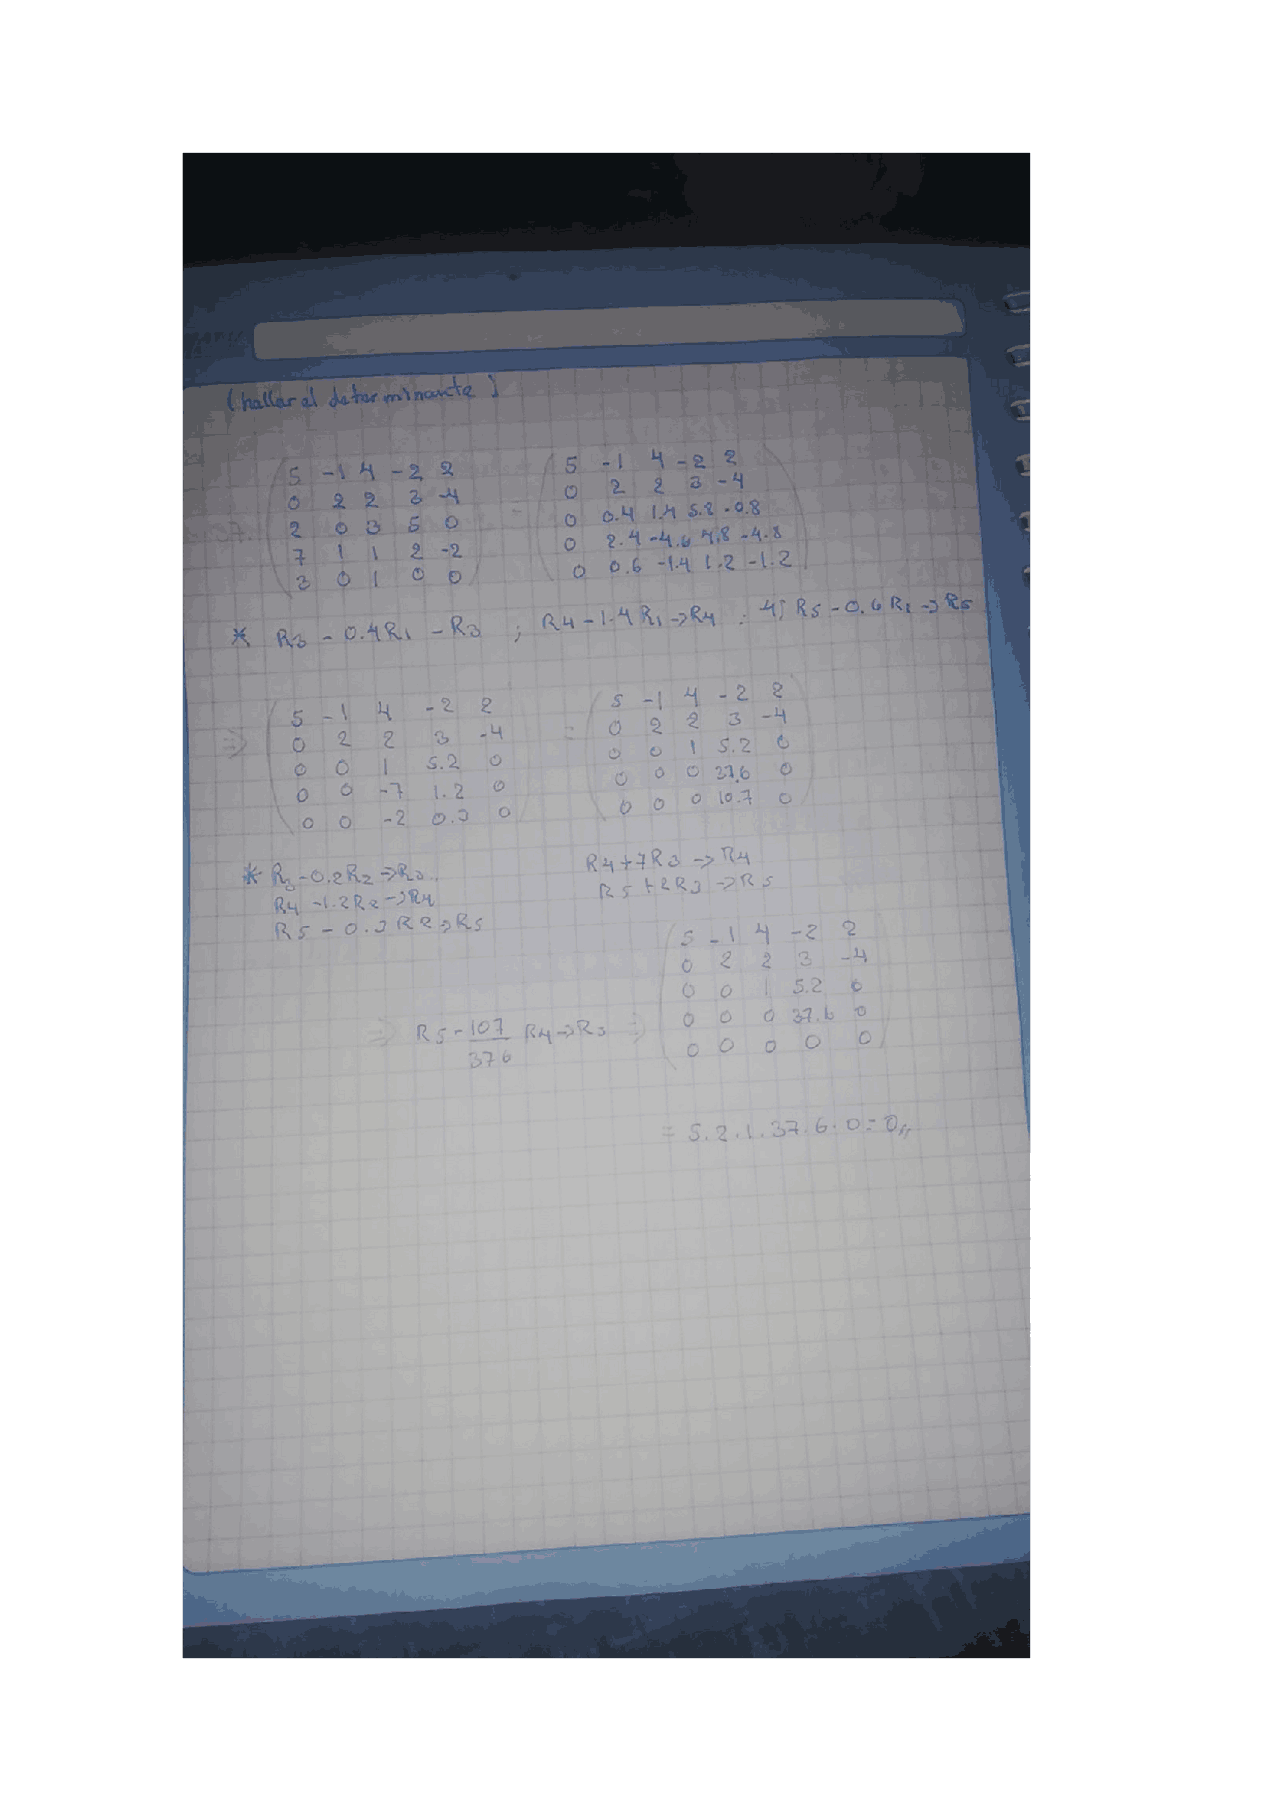 (hallar el determinante)
5 -1 4 -2 2
0 2 2 3 -4
2 0 3 5 0
7 1 1 2 -2
3 0 1 0 0
=
5 -1 4 -2 2
0 2 2 3 -4
0 0.4 1.4 5.8 -0.8
0 2.4 -4.6 4.8 -4.8
0 0.6 -1.4 1.2 -1.2
* R3 - 0.4R1 - R3 ; R4 - 1.4 R1 -> R4 ; 4) R5 - 0.6 R1 -> R5
=>
5 -1 4 -2 2
0 2 2 3 -4
0 0 1 5.2 0
0 0 -7 1.2 0
0 0 -2 0.3 0
=
5 -1 4 -2 2
0 2 2 3 -4
0 0 1 5.2 0
0 0 0 37.6 0
0 0 0 10.7 0
* R3 - 0.2R2 -> R3
R4 - 1.2R2 -> R4
R5 - 0.3 R2 -> R5
R4 + 7R3 -> R4
R5 + 2R3 -> R5
=> R5 - 107/376 R4 -> R3 =
5 -1 4 -2 2
0 2 2 3 -4
0 0 1 5.2 0
0 0 0 37.6 0
0 0 0 0 0
= 5.2.1.37.6.0 = 0